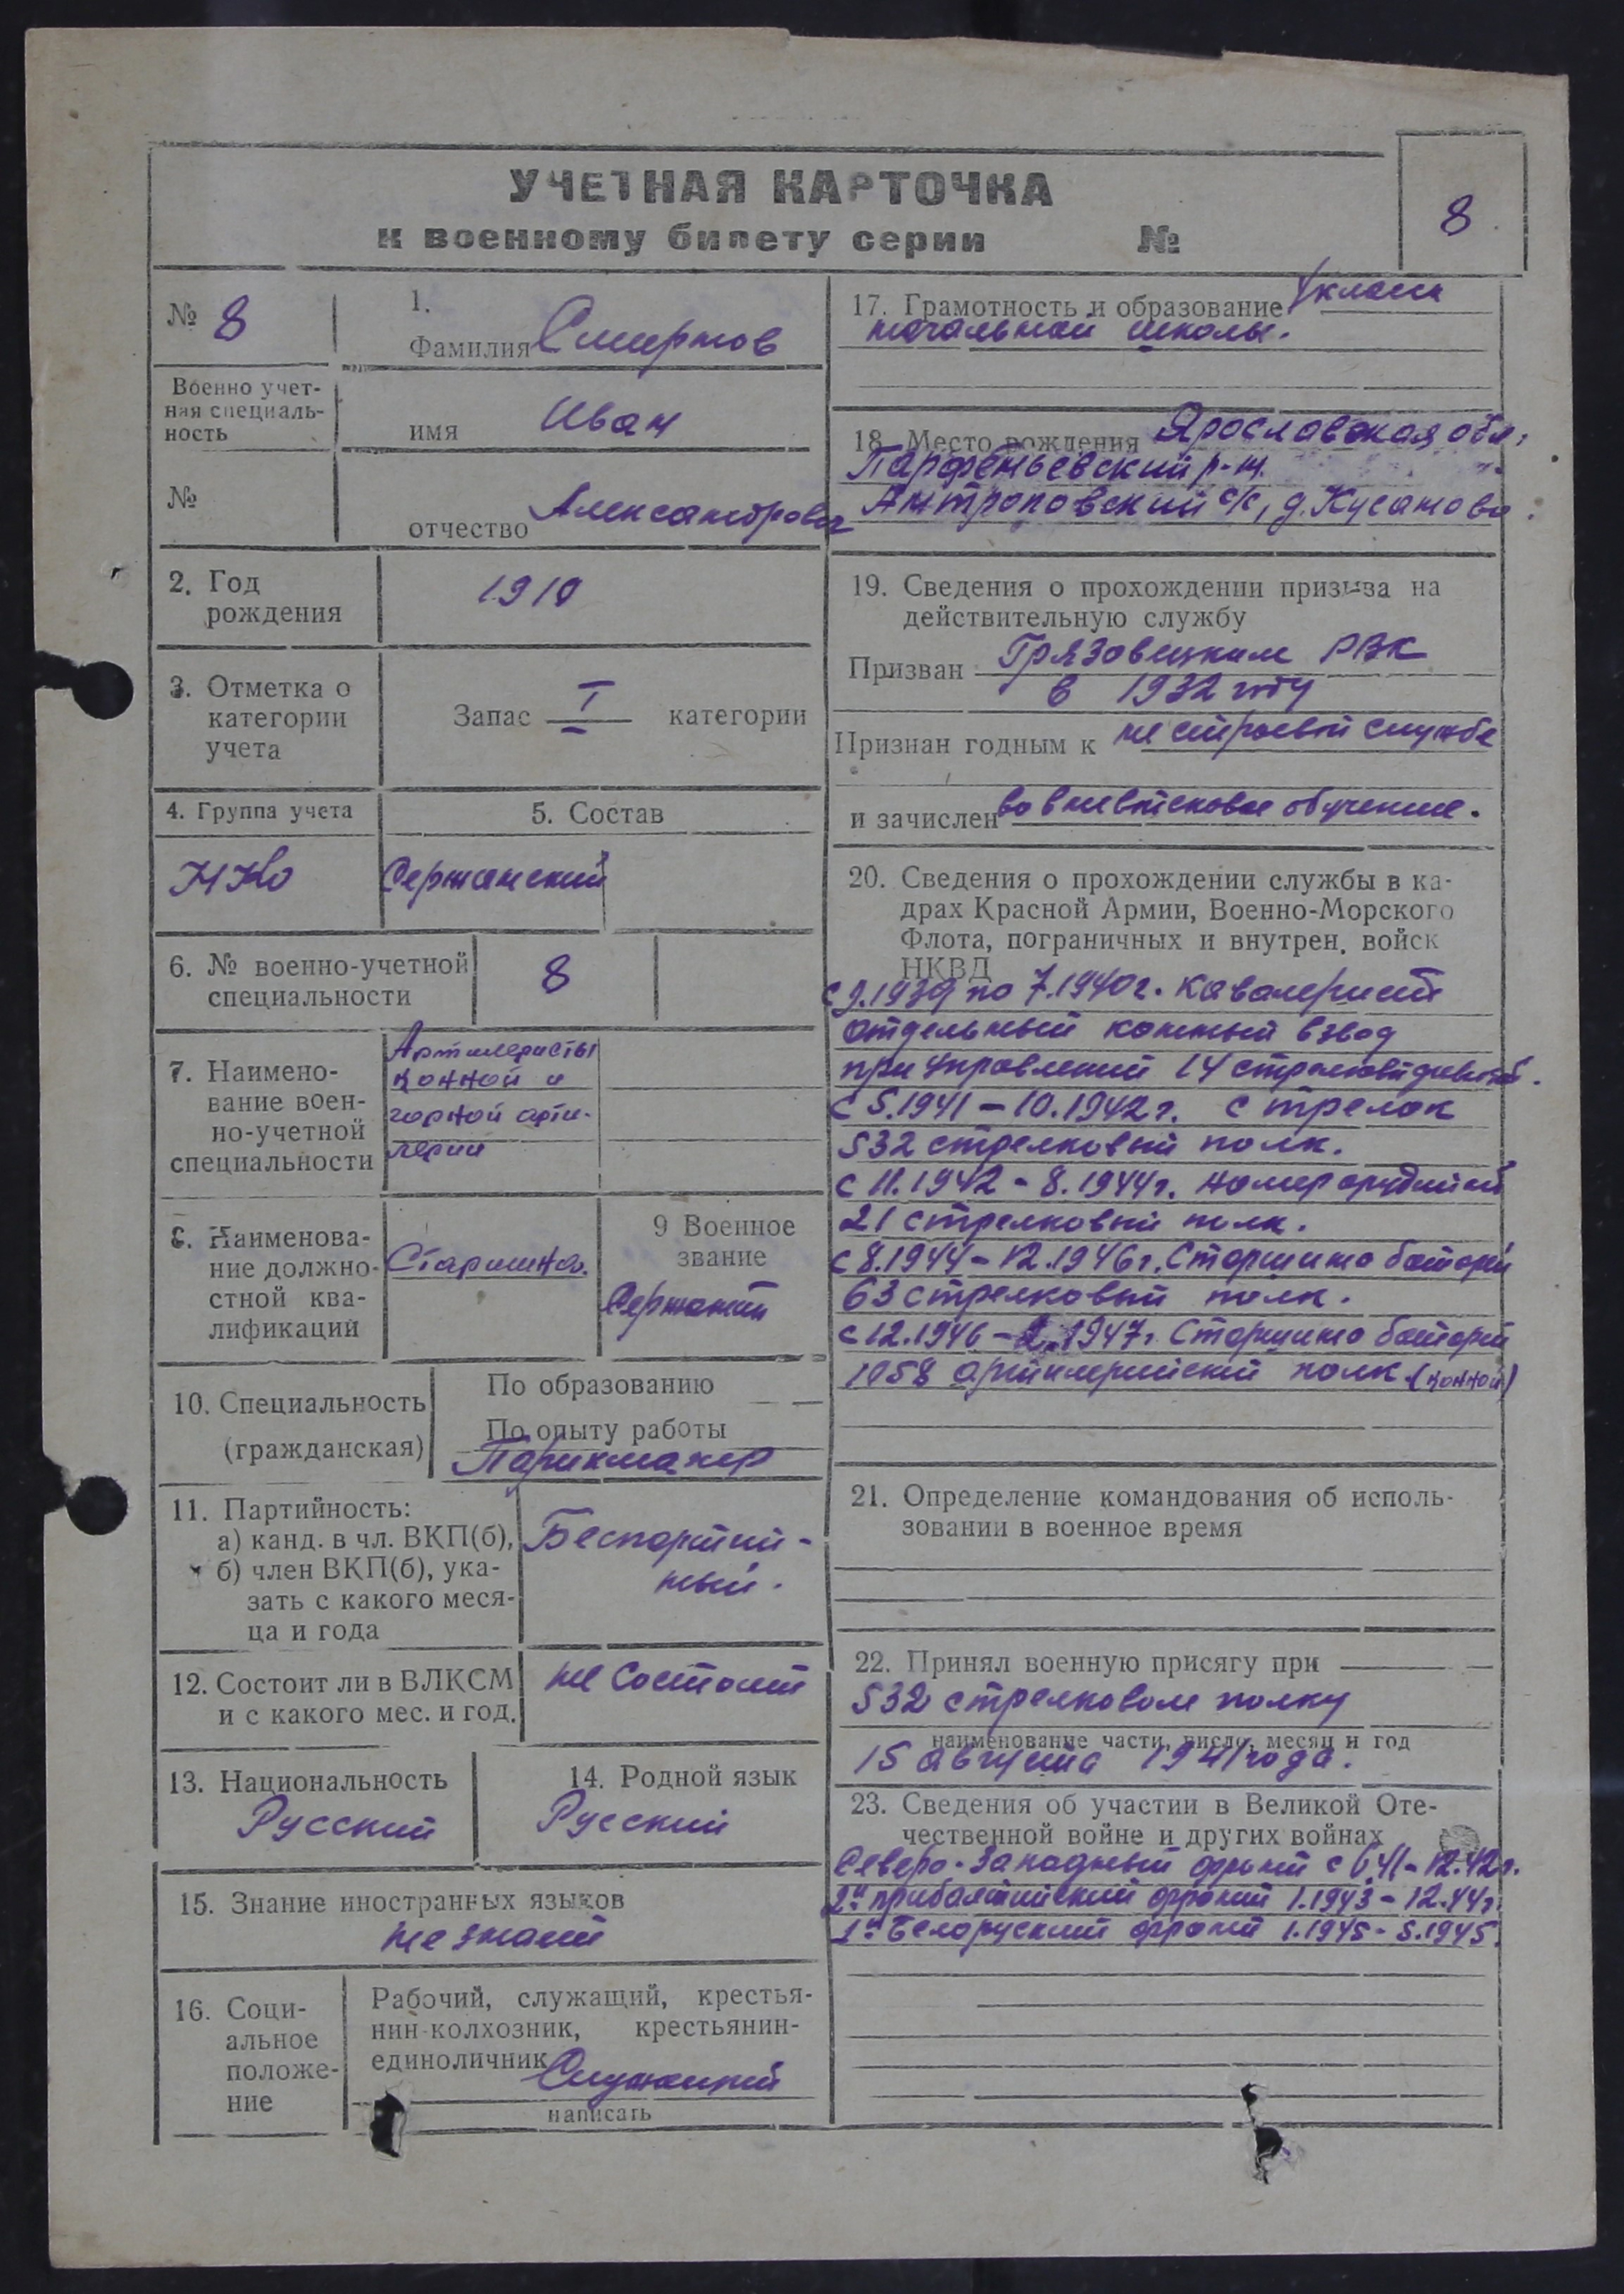 УЧЕТНАЯ КАРТОЧКА
к военному билету серии №
8
№ 8
1.
Фамилия Смирнов
Военно учет-
ная специаль-
ность
имя Иван
№
отчество Александрович
2. Год
рождения
1910
3. Отметка о
категории
учета
Запас I категории
4. Группа учета
5. Состав
Сержанский
6. № военно-учетной
специальности
8
7. Наимено-
вание воен-
но-учетной
специальности
Артиллеристы
конной и
горной арти-
лерии
8. Наименова-
ние должно-
стной ква-
лификаций
Старшина.
9 Военное
звание
Сержант
10. Специальность
(гражданская)
По образованию
По опыту работы
Парикмахер
11. Партийность:
а) канд. в чл. ВКП(б),
б) член ВКП(б), ука-
зать с какого меся-
ца и года
Беспартий-
ный.
12. Состоит ли в ВЛКСМ
и с какого мес. и год.
не состоит
13. Национальность
Русский
14. Родной язык
Русский
15. Знание иностранных языков
не знает
16. Соци-
альное
положе-
ние
Рабочий, служащий, крестья-
нин-колхозник, крестьянин-
единоличник
Служащий
написать
17. Грамотность и образование класса
начальной школы.
18. Место рождения Ярославская обл.
Парфеньевский р-н.
Антроповский с/с, д. Кусаново.
19. Сведения о прохождении призыва на
действительную службу
Призван Грязовецким РВК
в 1932 году
Признан годным к не строевой службе
и зачислен во вневойсковое обучение.
20. Сведения о прохождении службы в ка-
драх Красной Армии, Военно-Морского
Флота, пограничных и внутрен. войск
НКВД
с 9.1939 по 7.1940г. кавалерист
отдельный конный взвод
при управлений 14 стрелковой
с 5.1941 - 10.1942г. стрелок
532 стрелковый полк.
с 11.1942 - 8.1944г. номер орудийный
21 стрелковый полк.
с 8.1944 - 12.1946г. Старшина батареи
63 стрелковый полк.
с 12.1946 - 2.1947г. Старшина батареи
1058 артилерийский полк. (конной)
21. Определение командования об исполь-
зовании в военное время
22. Принял военную присягу при
532 стрелковом полку
наименование части, число, месяц и год
15 августа 1941 года.
23. Сведения об участии в Великой Оте-
чественной войне и других войнах
Северо-Западный фронт с 6.41 - 12.42г.
2й прибалтийский фронт 1.1943 - 12.44г.
1й Белоруский фронт 1.1945 - 5.1945.